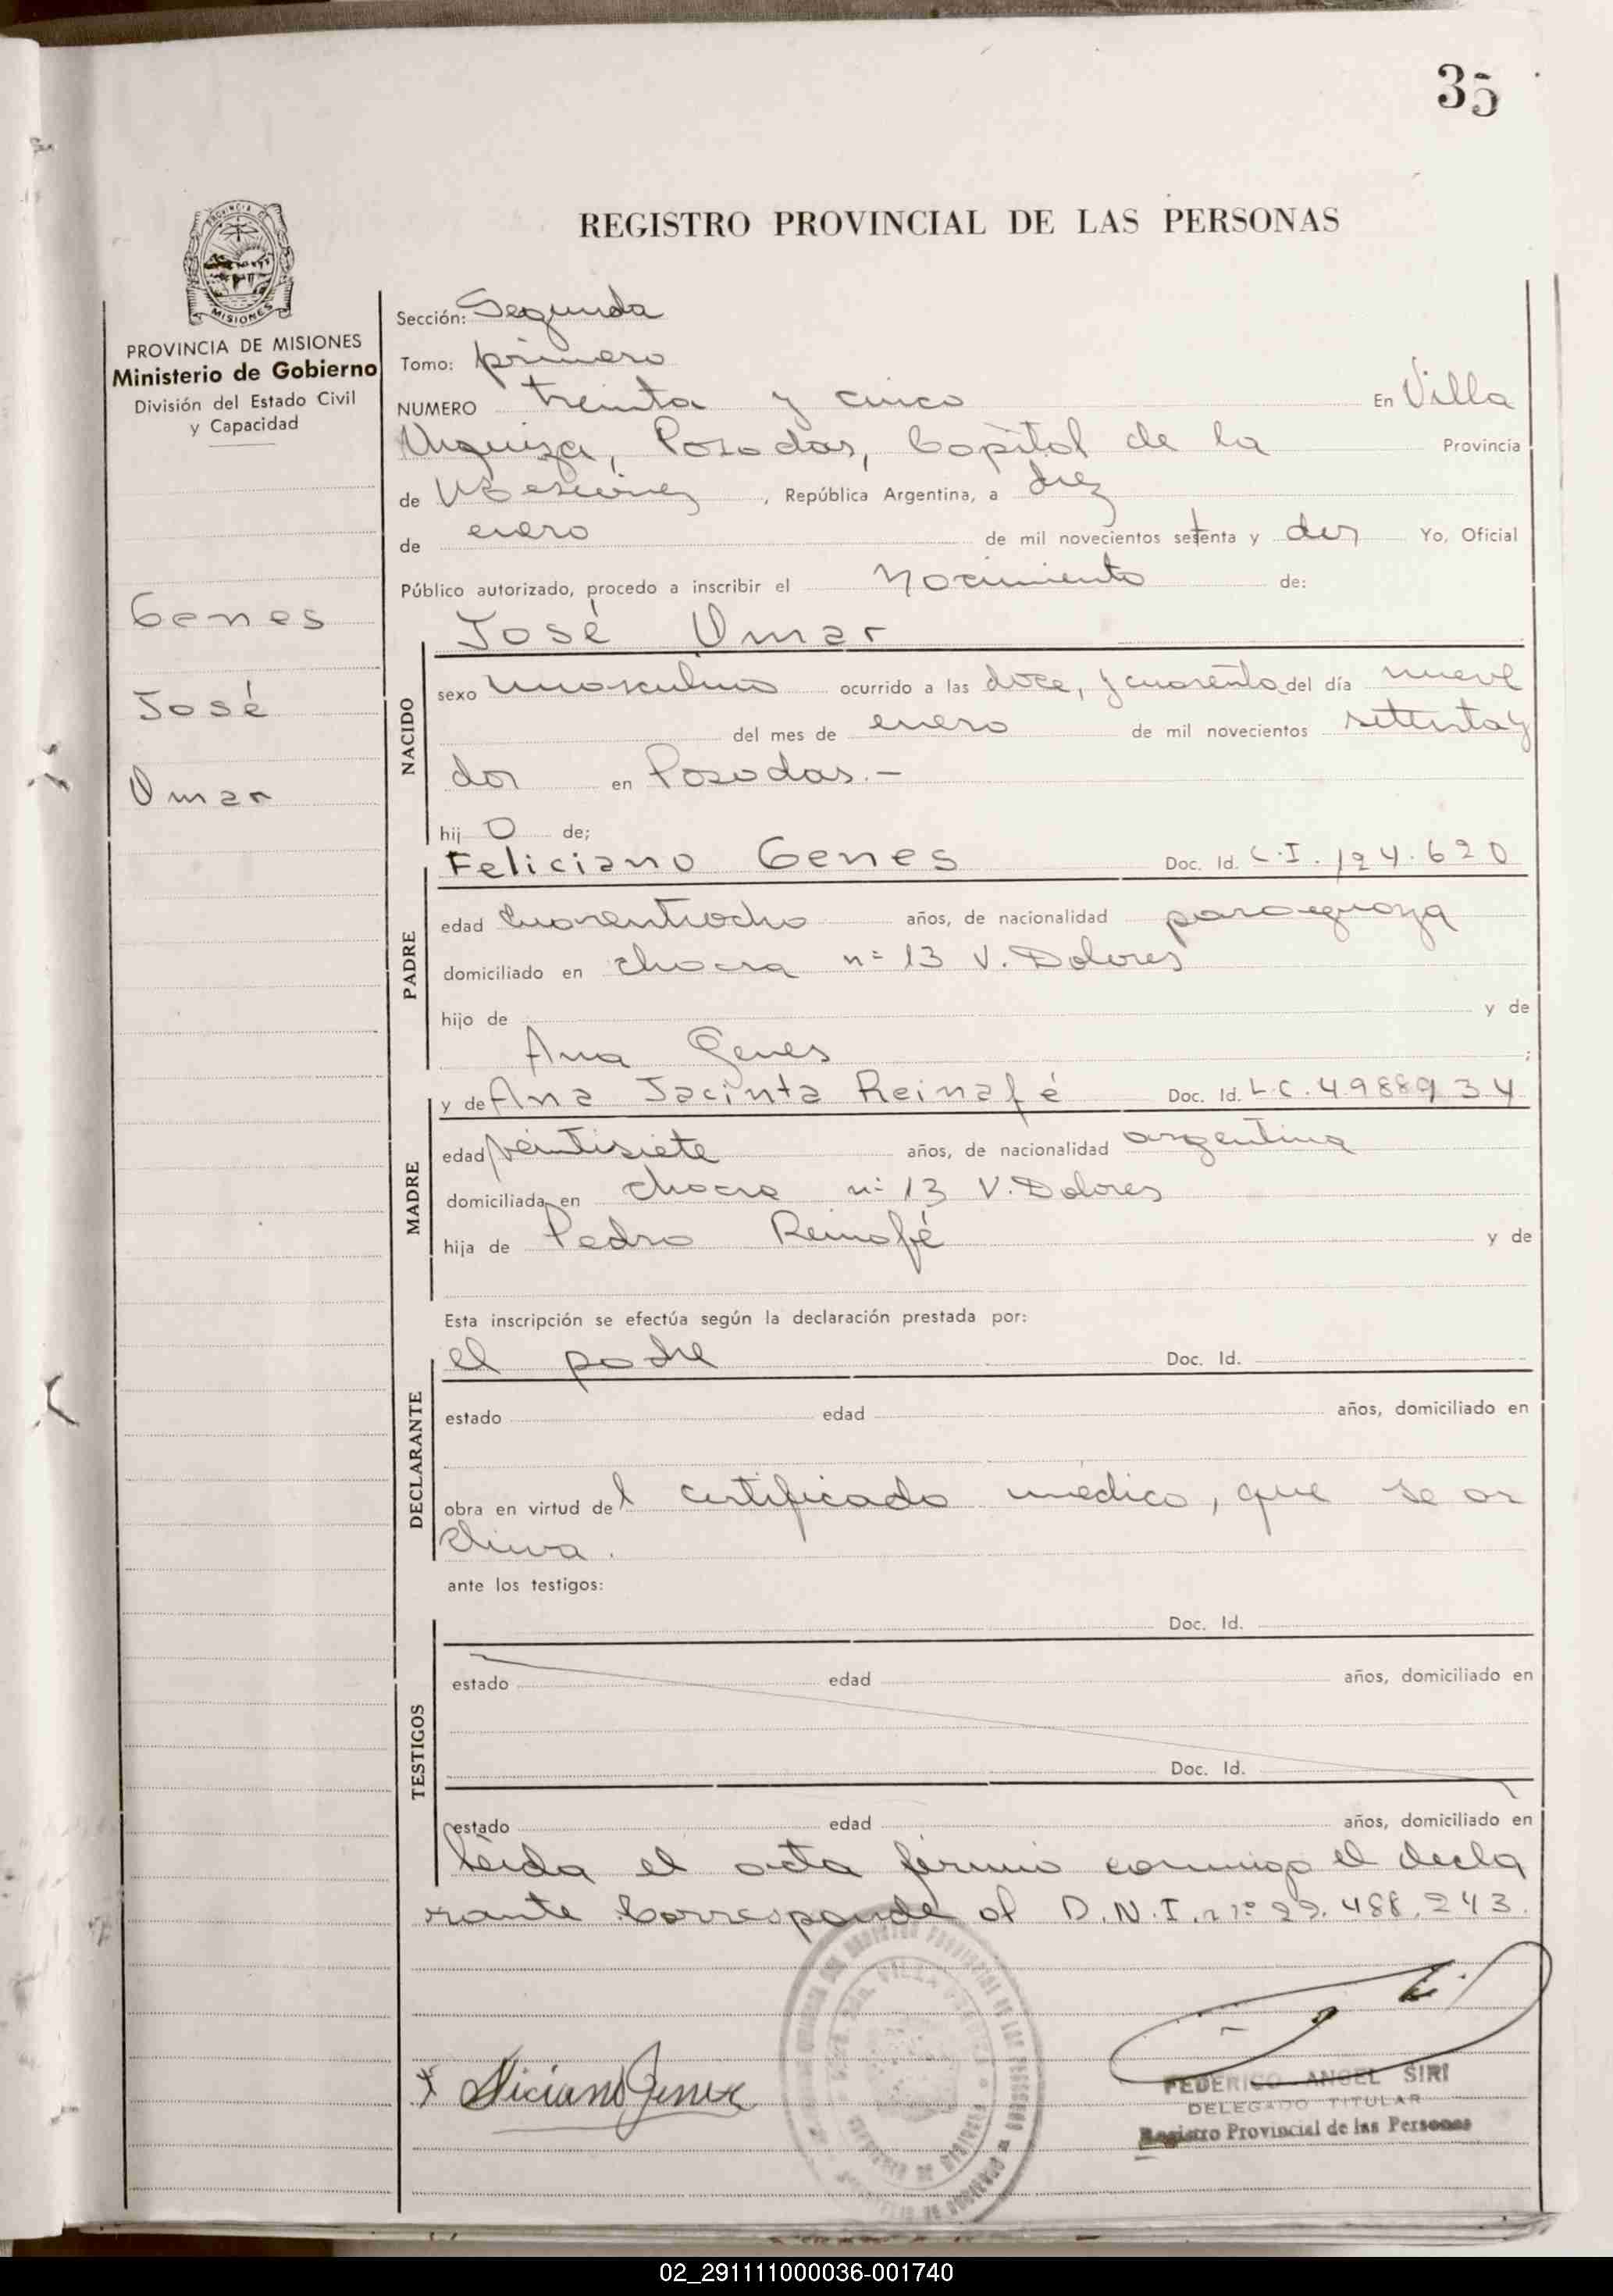 35
REGISTRO PROVINCIAL DE LAS PERSONAS
PROVINCIA DE MISIONES
Ministerio de Gobierno
División del Estado Civil
y Capacidad
Genes
José
Omar
Sección: Segunda
Tomo: primero
NUMERO treinta y cinco En Villa
Urquiza, Posadas, Capital de la Provincia
de Misiones, República Argentina, a diez
de enero de mil novecientos setenta y dos Yo, Oficial
Público autorizado, procedo a inscribir el Nacimiento de:
José Omar
NACIDO
sexo masculino ocurrido a las doce, y cuarenta del día nueve
del mes de enero de mil novecientos setenta y
dos en Posadas.-
hij o de;
Feliciano Genes Doc. Id. C.I. 124.620
PADRE
edad cuarentiocho años, de nacionalidad paraguaya
domiciliado en chacra n= 13 V. Dolores
hijo de y de
Ana Genes ;
y de Ana Jacinta Reinafé Doc. Id. L.C. 4988934
MADRE
edad veintisiete años, de nacionalidad argentina
domiciliada en chacra n= 13 V. Dolores
hija de Pedro Reinafé y de
Esta inscripción se efectúa según la declaración prestada por:
el padre Doc. Id.
DECLARANTE
estado edad años, domiciliado en
obra en virtud de l certificado médico, que se ar
chiva.
ante los testigos:
Doc. Id.
TESTIGOS
estado edad años, domiciliado en
Doc. Id.
estado edad años, domiciliado en
leída el acta firmó conmigo el decla
rante Corresponde al D.N.I. nº 22.488.243.
FEDERICO ANGEL SIRI
DELEGADO TITULAR
Registro Provincial de las Personas
02_291111000036-001740